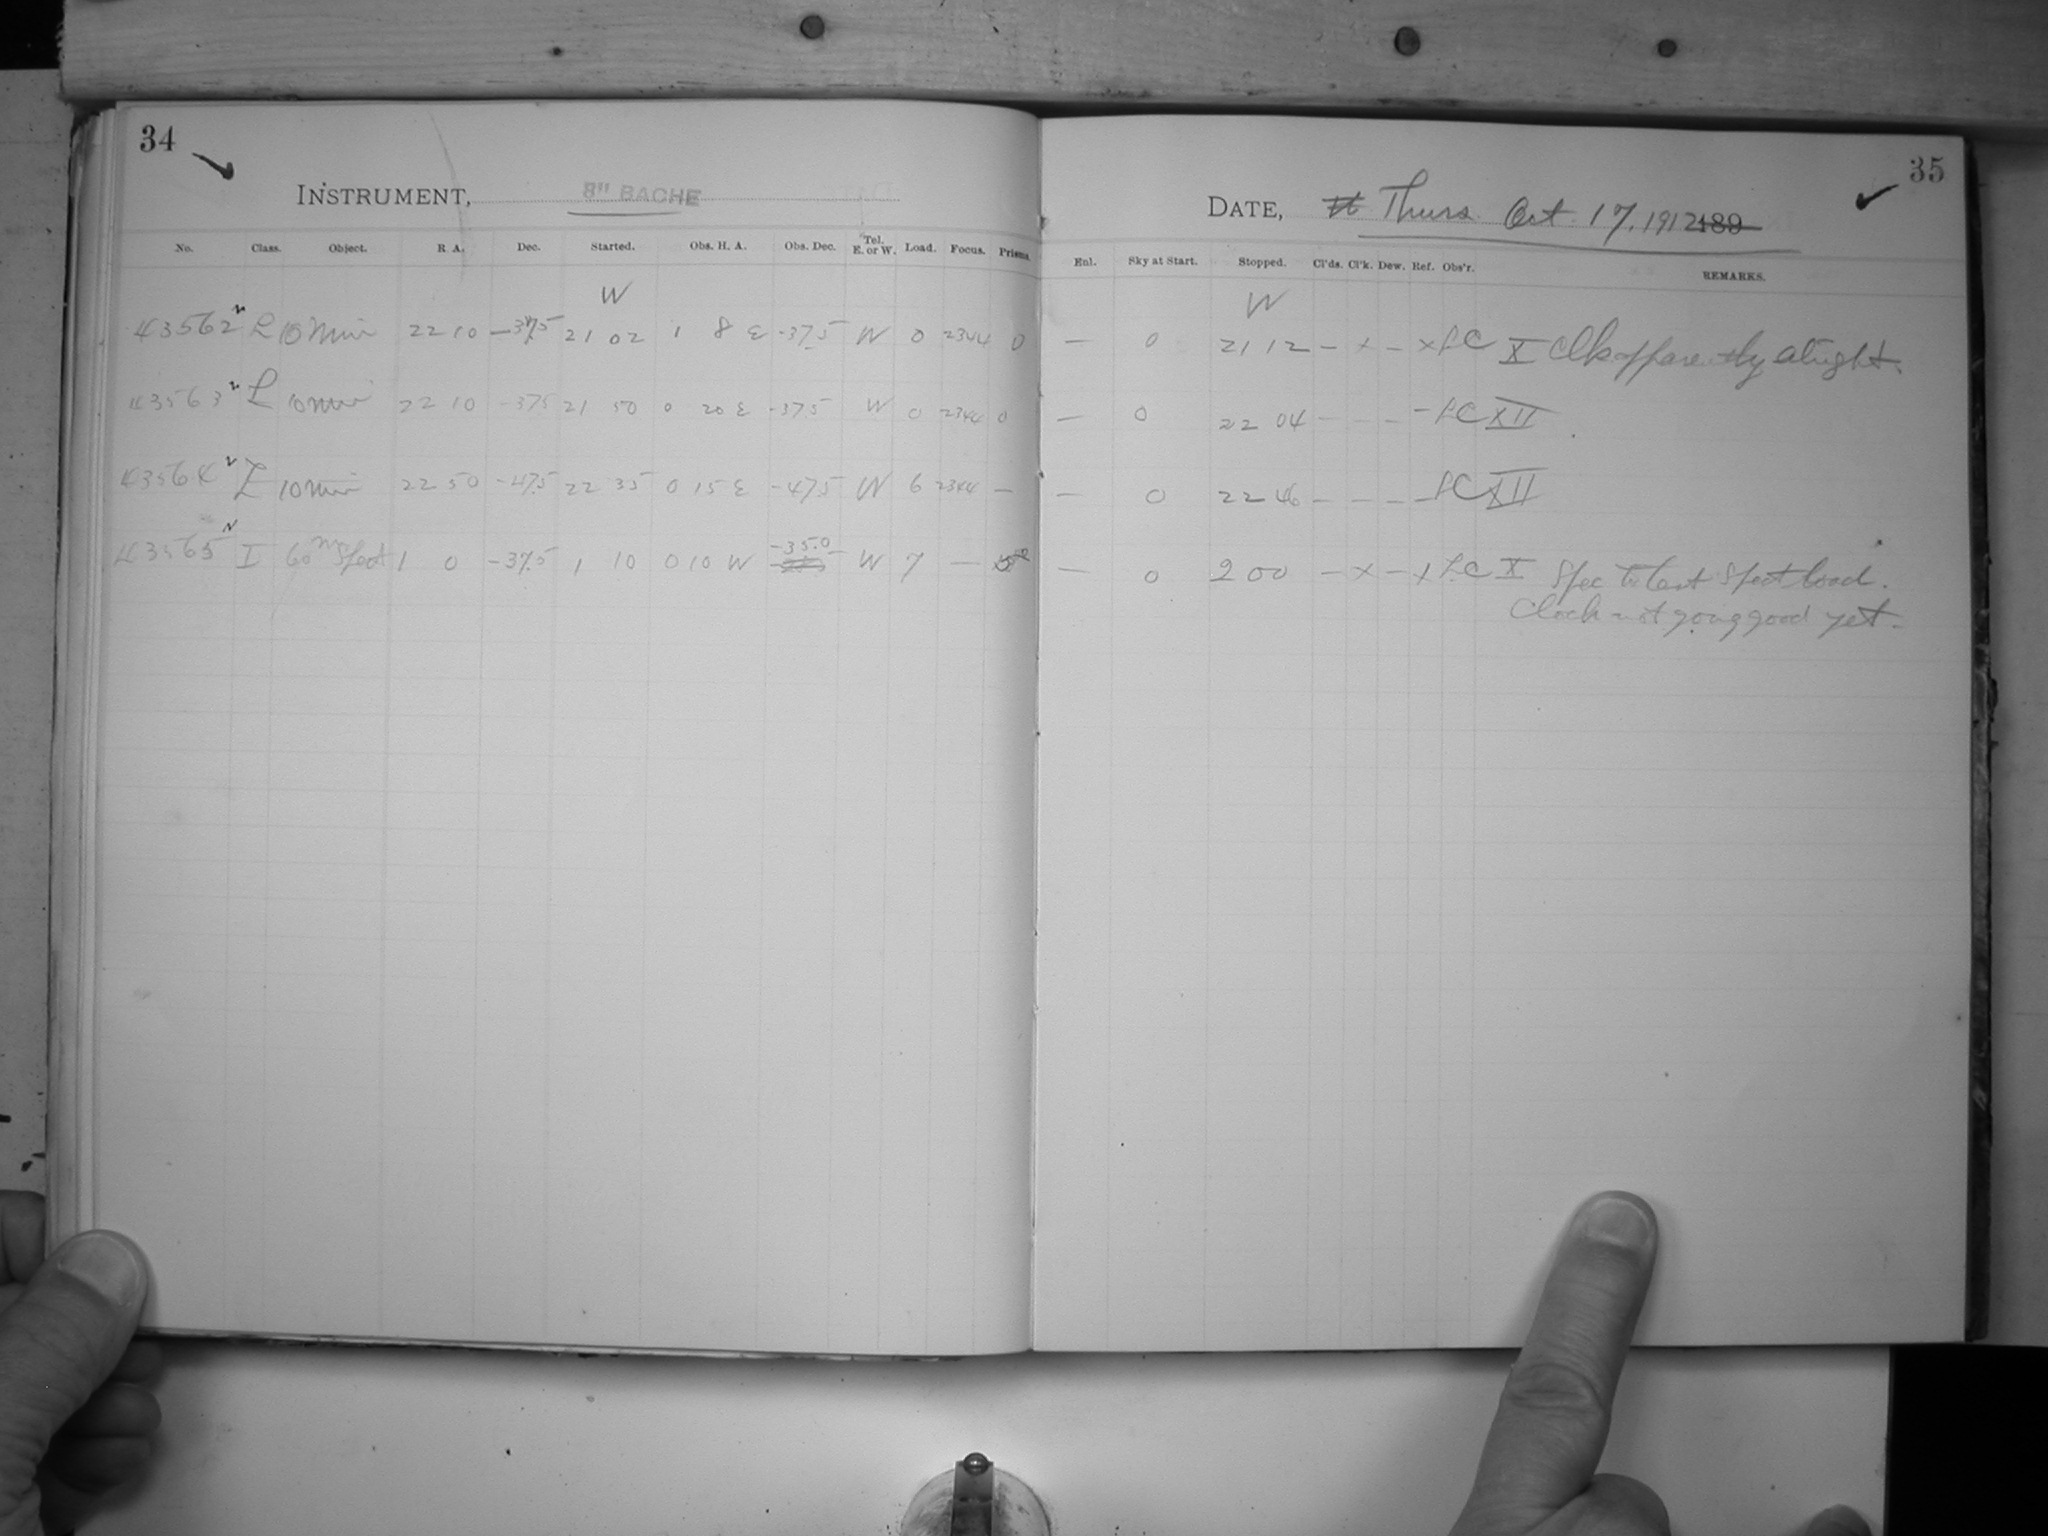 34
INSTRUMENT, 8" BACHE
No. Class. Object. R. A. Dec. Started. Obs. H. A. Obs. Dec. Tel. E. or W. Load. Focus. Prisms.
W
43562 L 10 min 22 10 -37.5 21 02 1 8 E -37.5 W 0 2344 0
43563 L 10 min 22 10 -37.5 21 50 0 20 E -37.5 W 0 2344 0
43564 L 10 min 22 50 -47.5 22 35 0 15 E -47.5 W 6 2344 -
43565 I 60 m Spect 1 0 -37.5 1 10 0 10 W -35.0 W 7 -
35
DATE, Thurs Oct. 17, 1912 189
Enl. Sky at Start. Stopped. Cl'ds. Cl'k. Dew. Ref. Obs'r. REMARKS.
W
- 0 21 12 - x - x LC X Clk apparently alright.
- 0 22 04 - - - - LC XII
- 0 22 46 - - - - LC XII
- 0 2 00 - x - x LC X Spec to test Spect load.
Clock not going good yet.